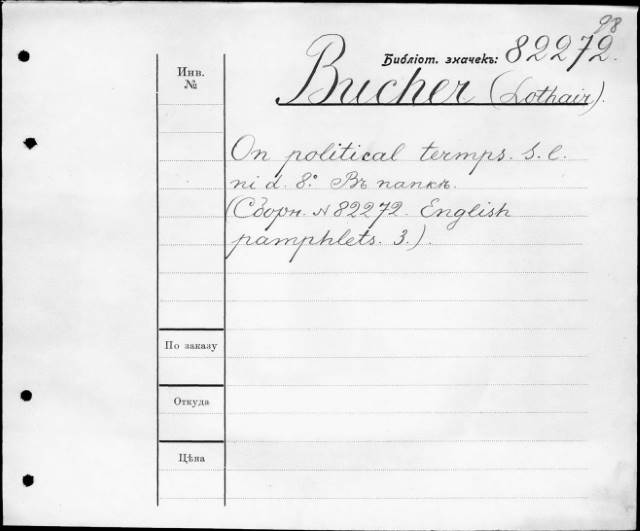 98
Библіот. значекъ: 82272.
Инв.
№
Bucher (Lothair).
On political termps. S. l.
ni d. 8º. Въ папкѣ.
(Сборн. № 82272. English
pamphlets. 3.).
По заказу
Откуда
Цѣна